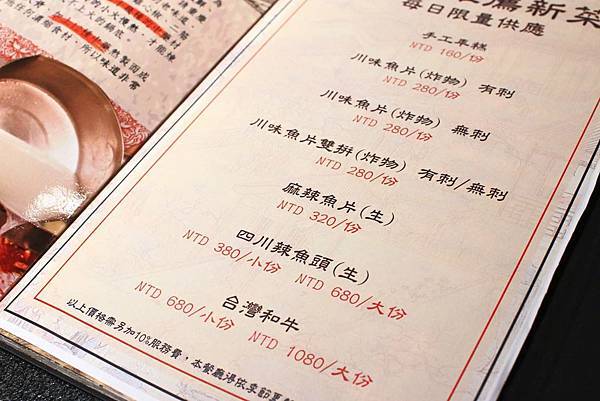 薦新菜
每日限量供應
手工年糕
NTD 160/份
川味魚片(炸物) 有刺
NTD 280/份
川味魚片(炸物) 無刺
NTD 280/份
川味魚片雙拼(炸物) 有刺/無刺
NTD 280/份
麻辣魚片(生)
NTD 320/份
四川辣魚頭(生)
NTD 380/小份 NTD 680/大份
台灣和牛
NTD 680/小份 NTD 1080/大份
以上價格需另加10%服務費，本餐廳得依季節更